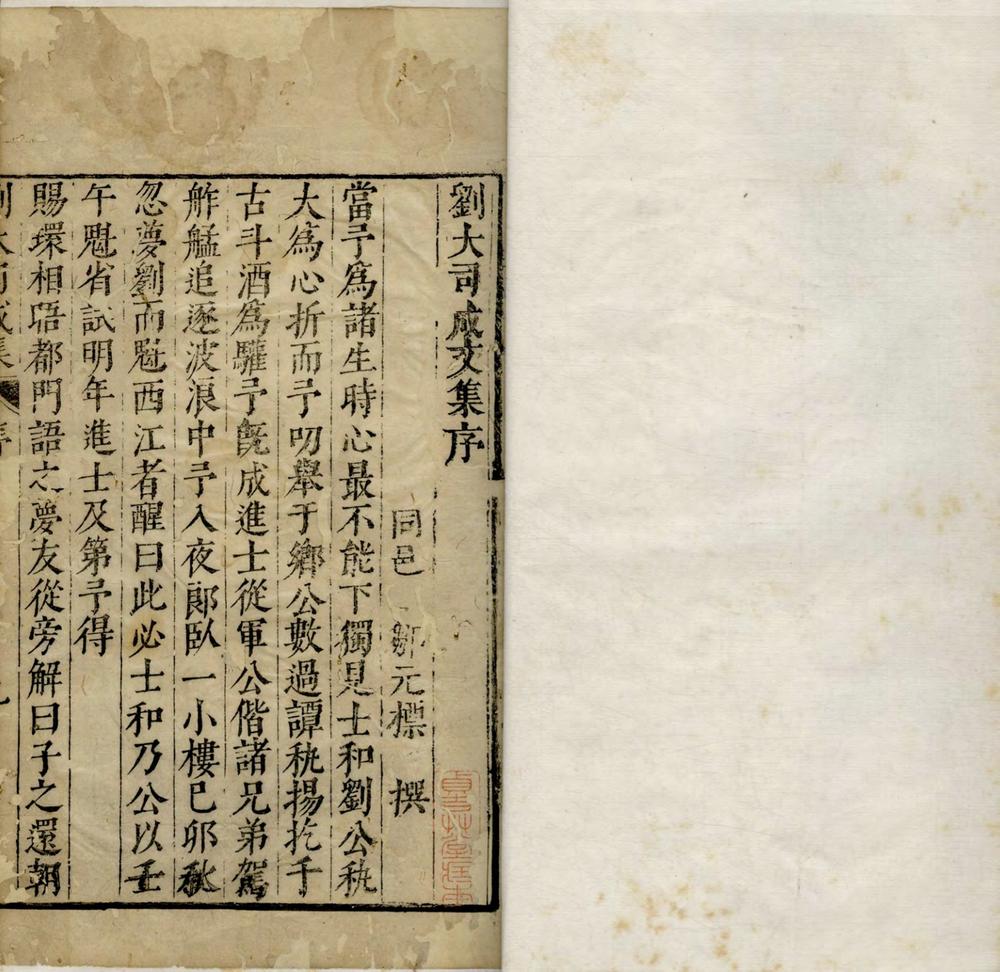 劉大司成文集序
同邑 鄒元標 撰
當予爲諸生時心最不能下獨見士和劉公秇
大爲心折而予叨舉于鄉公數過譚秇揚扢千
古斗酒爲驩予旣成進士從軍公偕諸兄弟駕
舴艋追逐波浪中予入夜郞臥一小樓已卯秋
忽夢劉而魁西江者醒曰此必士和乃公以壬
午魁省試明年進士及第予得
賜環相晤都門語之夢友從旁解曰子之還朝